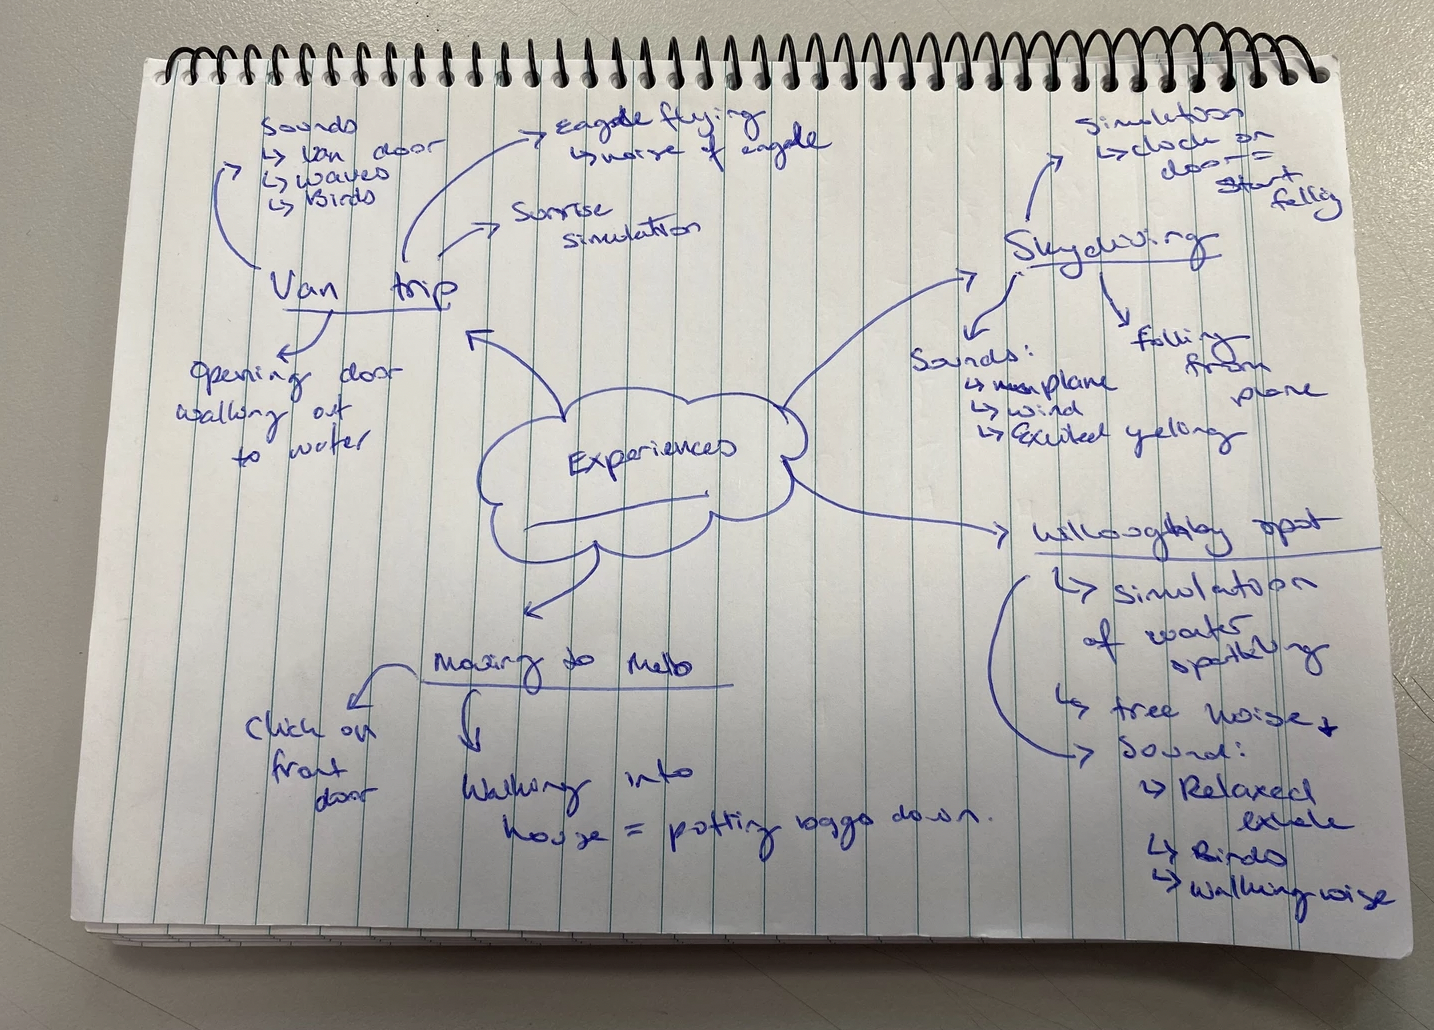 Sounds
↳ Van door
↳ waves
↳ Birds
Eagle flying
↳ noise of eagle
Sunrise
simulation
Van trip
Opening door
walking out
to water
Simulation
↳ click on
door =
start
falling
Skydiving
Sounds:
↳ plane
↳ wind
↳ Excited yelling
falling
from
plane
Experiences
Willoughby spot
↳ simulation
of water
sparkling
↳ tree noise +
Sound:
↳ Relaxed
exhale
↳ Birds
↳ walking noise
Moving to Melb
Click on
front
door
Walking into
house = putting bags down.